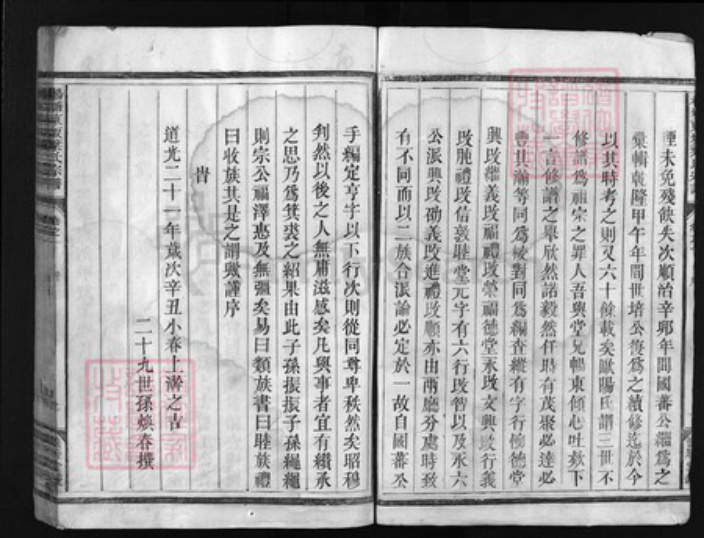 湮未免殘缺失次順治辛卯年間國蕃公繼爲之
彙輯乾隆甲午年間世培公復爲之續修迄於今
以其時考之則又六十餘載矣歐陽氏謂三世不
修譜爲祖宗之罪人吾與堂兄暢東傾心吐欵下
一言修譜之舉欣然諾毅然任時有茂聚必達必
曹其瀚等同爲校對同爲編查縱有字行懷德堂
興改繼義改福禮改榮福德堂永改文興改行義
改胞禮改信敦睦堂元字有六行改智以及永六
公派興改劭義改進禮改順亦由兩廳分處時致
有不同而以二族合派論必定於一故自國蕃公
手編定亨字以下行次則從同尊卑秩然矣昭穆
判然以後之人無庸滋惑矣凡與事者宜有纘承
之思乃爲箕裘之紹果由此子孫振振子孫繩繩
則宗公福澤惠及無疆矣易曰類族書曰睦族禮
曰收族其是之謂歟謹序
旹
道光二十一年歲次辛丑小春上澣之吉
二十九世孫煥春撰